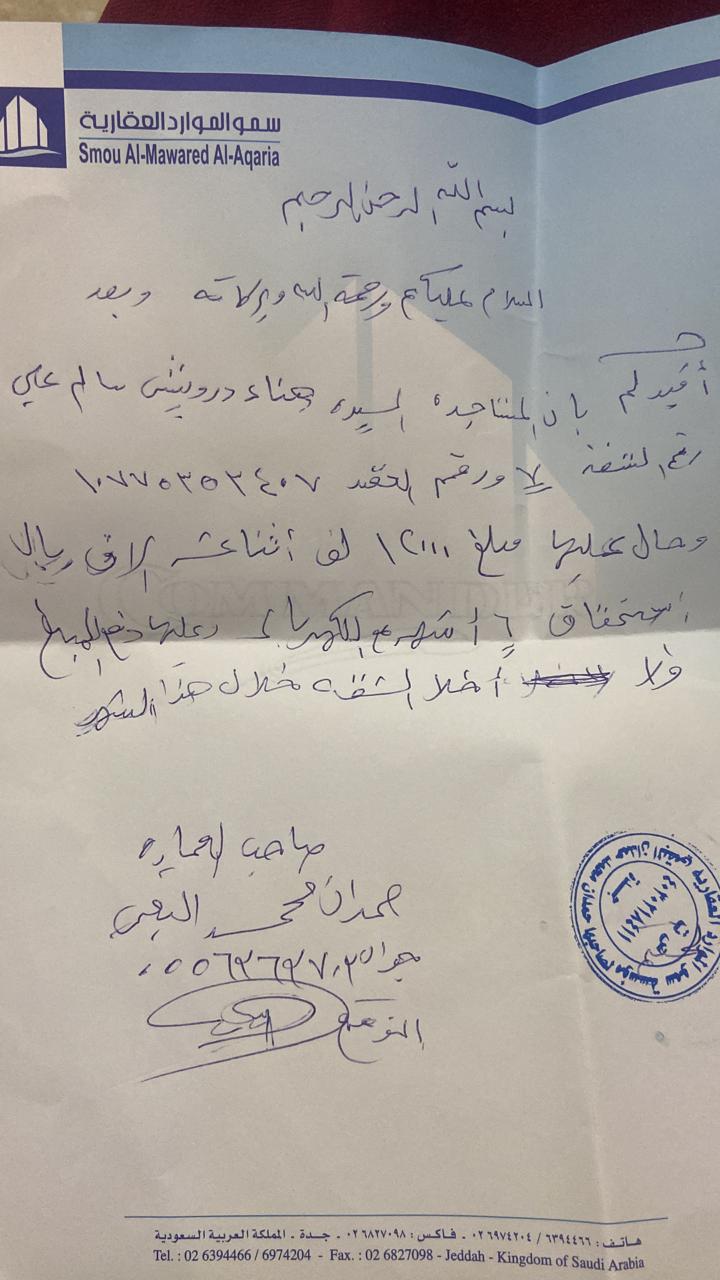 سمو الموارد العقارية
Smou Al-Mawared Al-Aqaria
بسم الله الرحمن الرحيم
السلام عليكم ورحمة الله وبركاته وبعد
أفيدكم بأن المستاجرة السيدة هناء درويش سالم علي
رقم الشقة ٧ ورقم العقد ١٠٧٧٥٣٥٣٤٠٧
وحال عليها مبلغ ١٢٠٠٠ فقط أثنا عشر الاف ريال
استحقاق ٦ أشهر مع الكهرباء وعليها دفع المبلغ
ولا أخلا الشقه خلال هذا الشهر
صاحب العماره
حمدان محمد
جوال ٠٥٥٦٣٦٣٧٠٣
التوقيع
COMMANDER
هاتف : ٦٣٩٤٤٦٦ / ٦٩٧٤٢٠٤ ٠٢ - فاكس : ٦٨٢٧٠٩٨ ٠٢ - جدة - المملكة العربية السعودية
Tel. : 02 6394466 / 6974204 - Fax. : 02 6827098 - Jeddah - Kingdom of Saudi Arabia